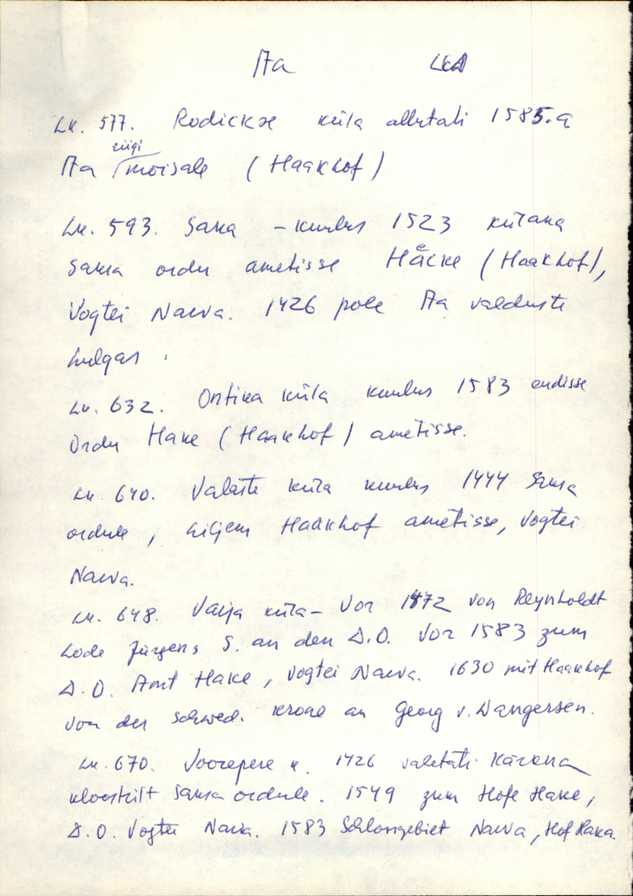 Aa LCA
Lk. 577. Rodickæ küla allutati 1585.a
riigi
Aa mõisale (Haakhof)
Lk. 593. Saka - kuulus 1523 külana
Saksa ordu ametisse Håcke (Haakhof),
Vogtei Narva. 1426 pole Aa valduste
hulgas.
Lk. 632. Ontika küla kuulus 1583 endisse
Ordu Hake (Haakhof) ametisse.
Lk. 640. Valaste küla kuulus 1444 Saksa
ordule, hiljem Haakhof ametisse, Vogtei
Narva.
Lk. 648. Varja küla - Vor 1472 von Reynholdt
Lode Jürgens S. an den D.O. Vor 1583 zum
D.O. Amt Hake, Vogtei Narva. 1630 mit Haakhof
von der schwed. Krone an Georg v. Wangersen.
Lk. 670. Voorepere k. 1426 vahetati Kärkna
kloostrilt Saksa ordule. 1549 zum Hofe Hake,
D.O. Vogtei Narva. 1583 Schlossgebiet Narva, Hof Haka.